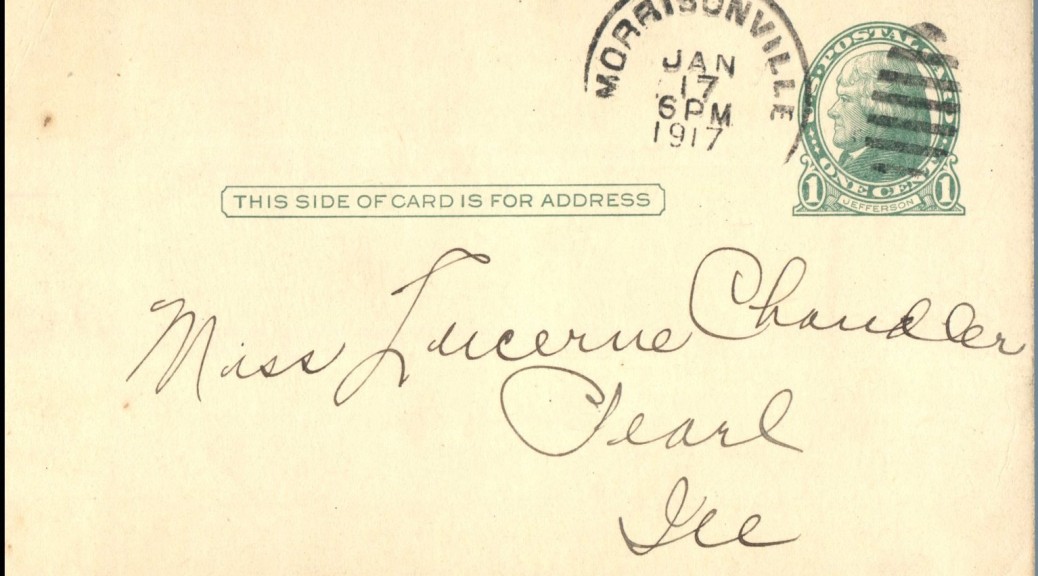 MORRISONVILLE
JAN
17
6 PM
1917
U.S. POSTAL CARD
ONE CENT
1 JEFFERSON 1
THIS SIDE OF CARD IS FOR ADDRESS
Miss Lucerne Chandler
Pearl
Ill